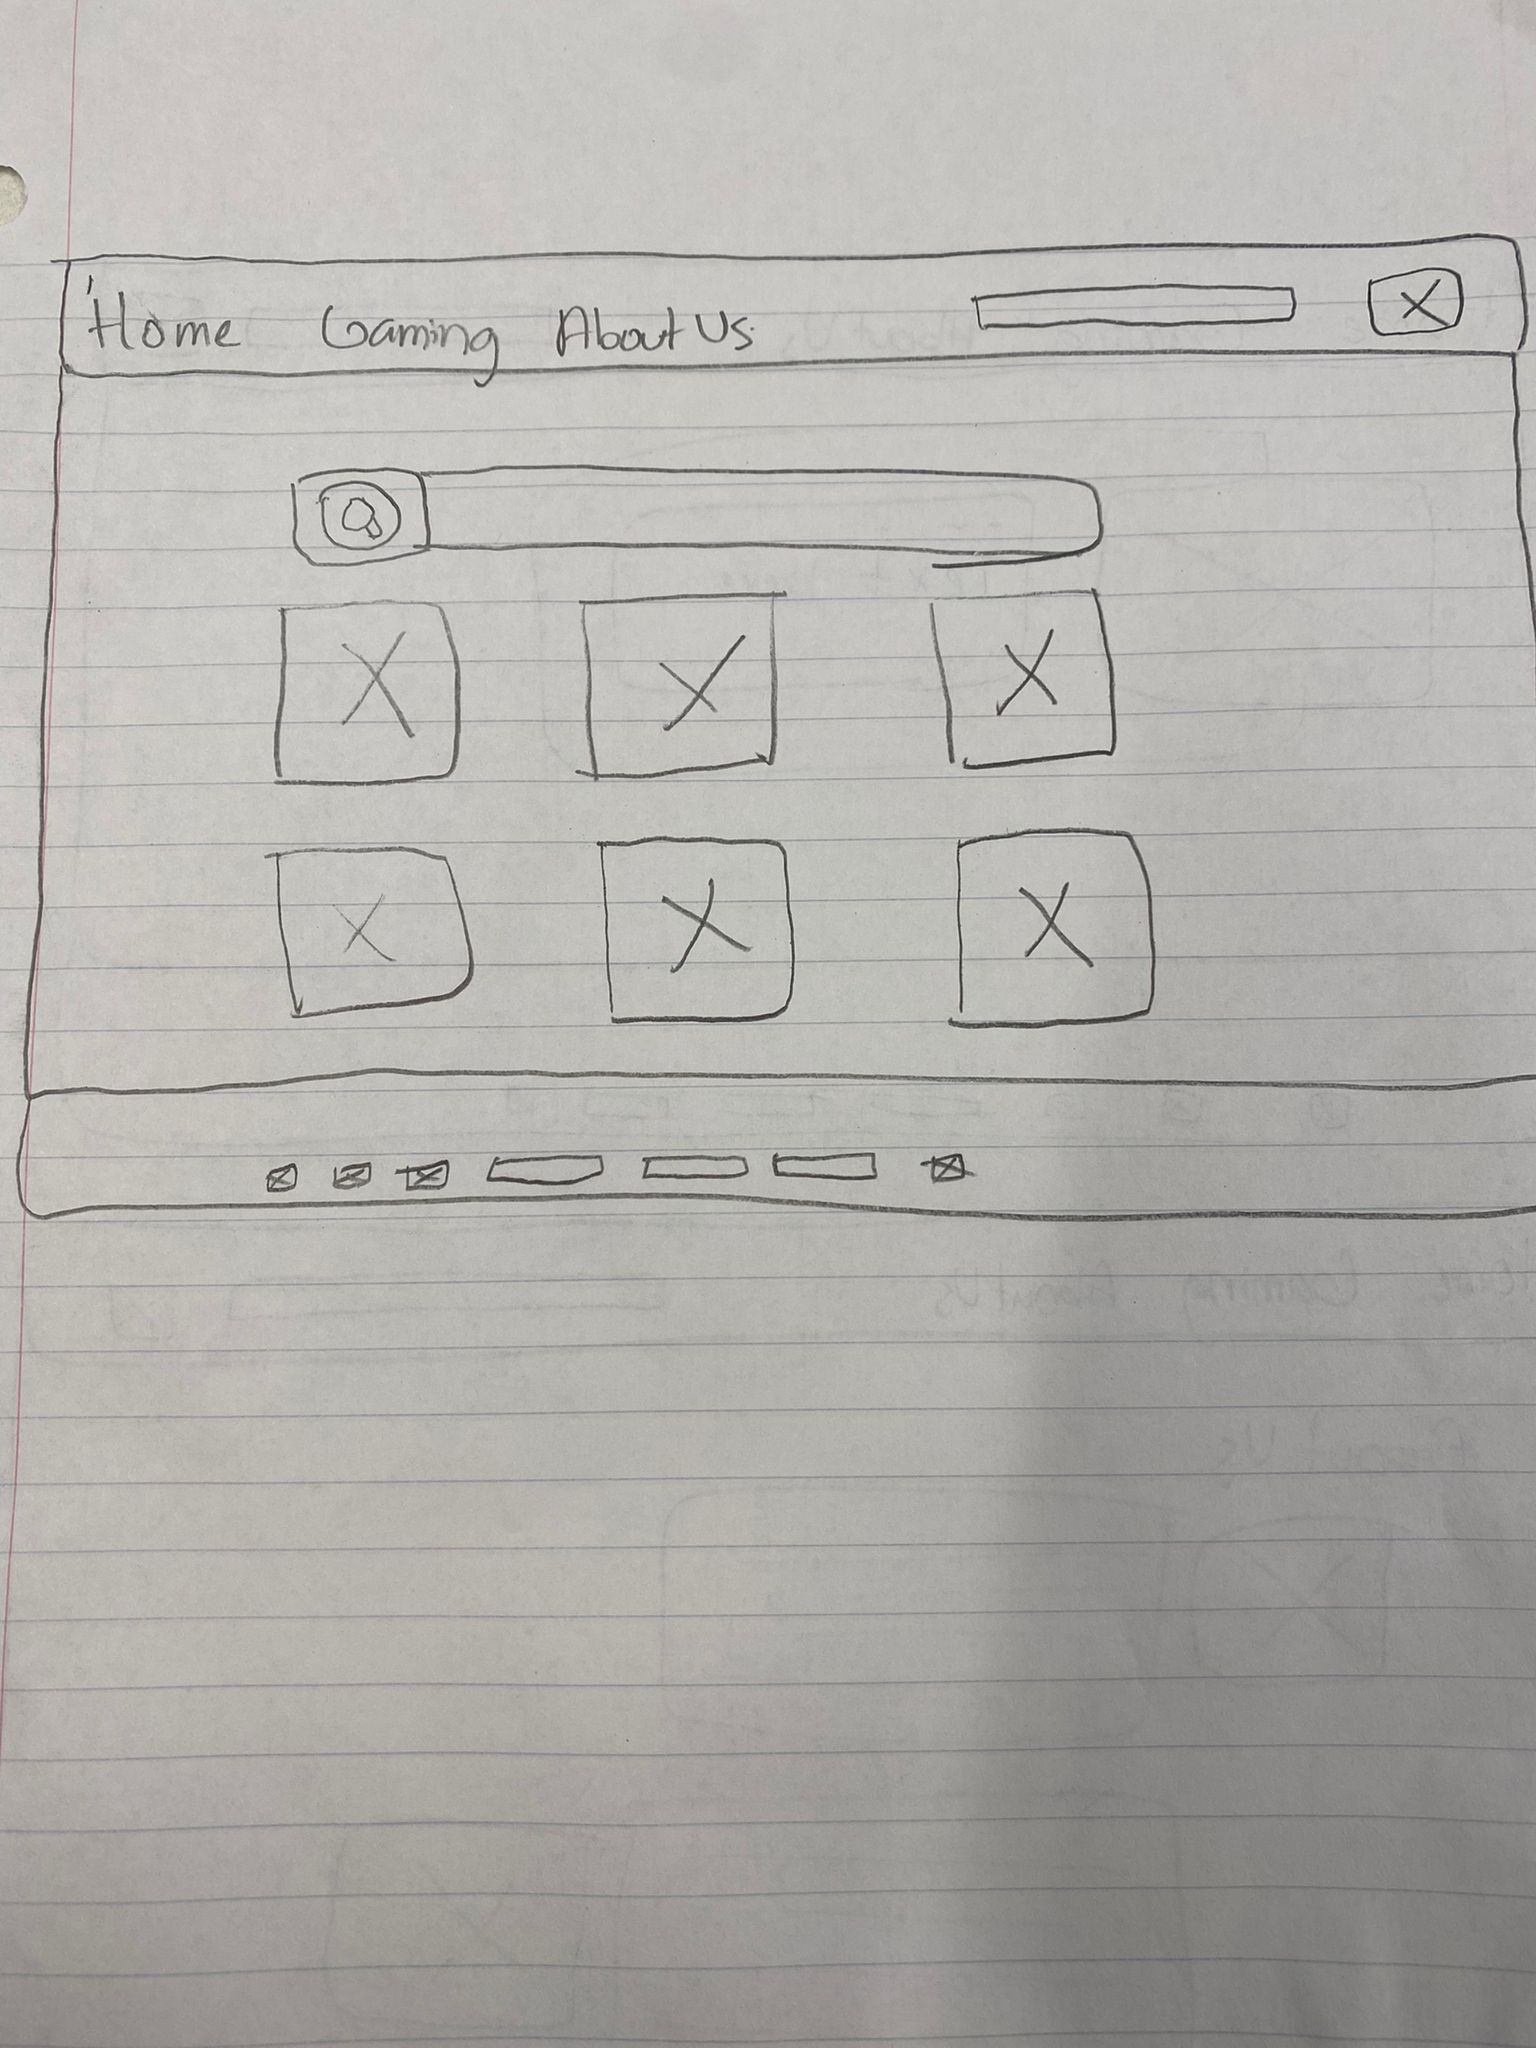 Home Gaming About Us